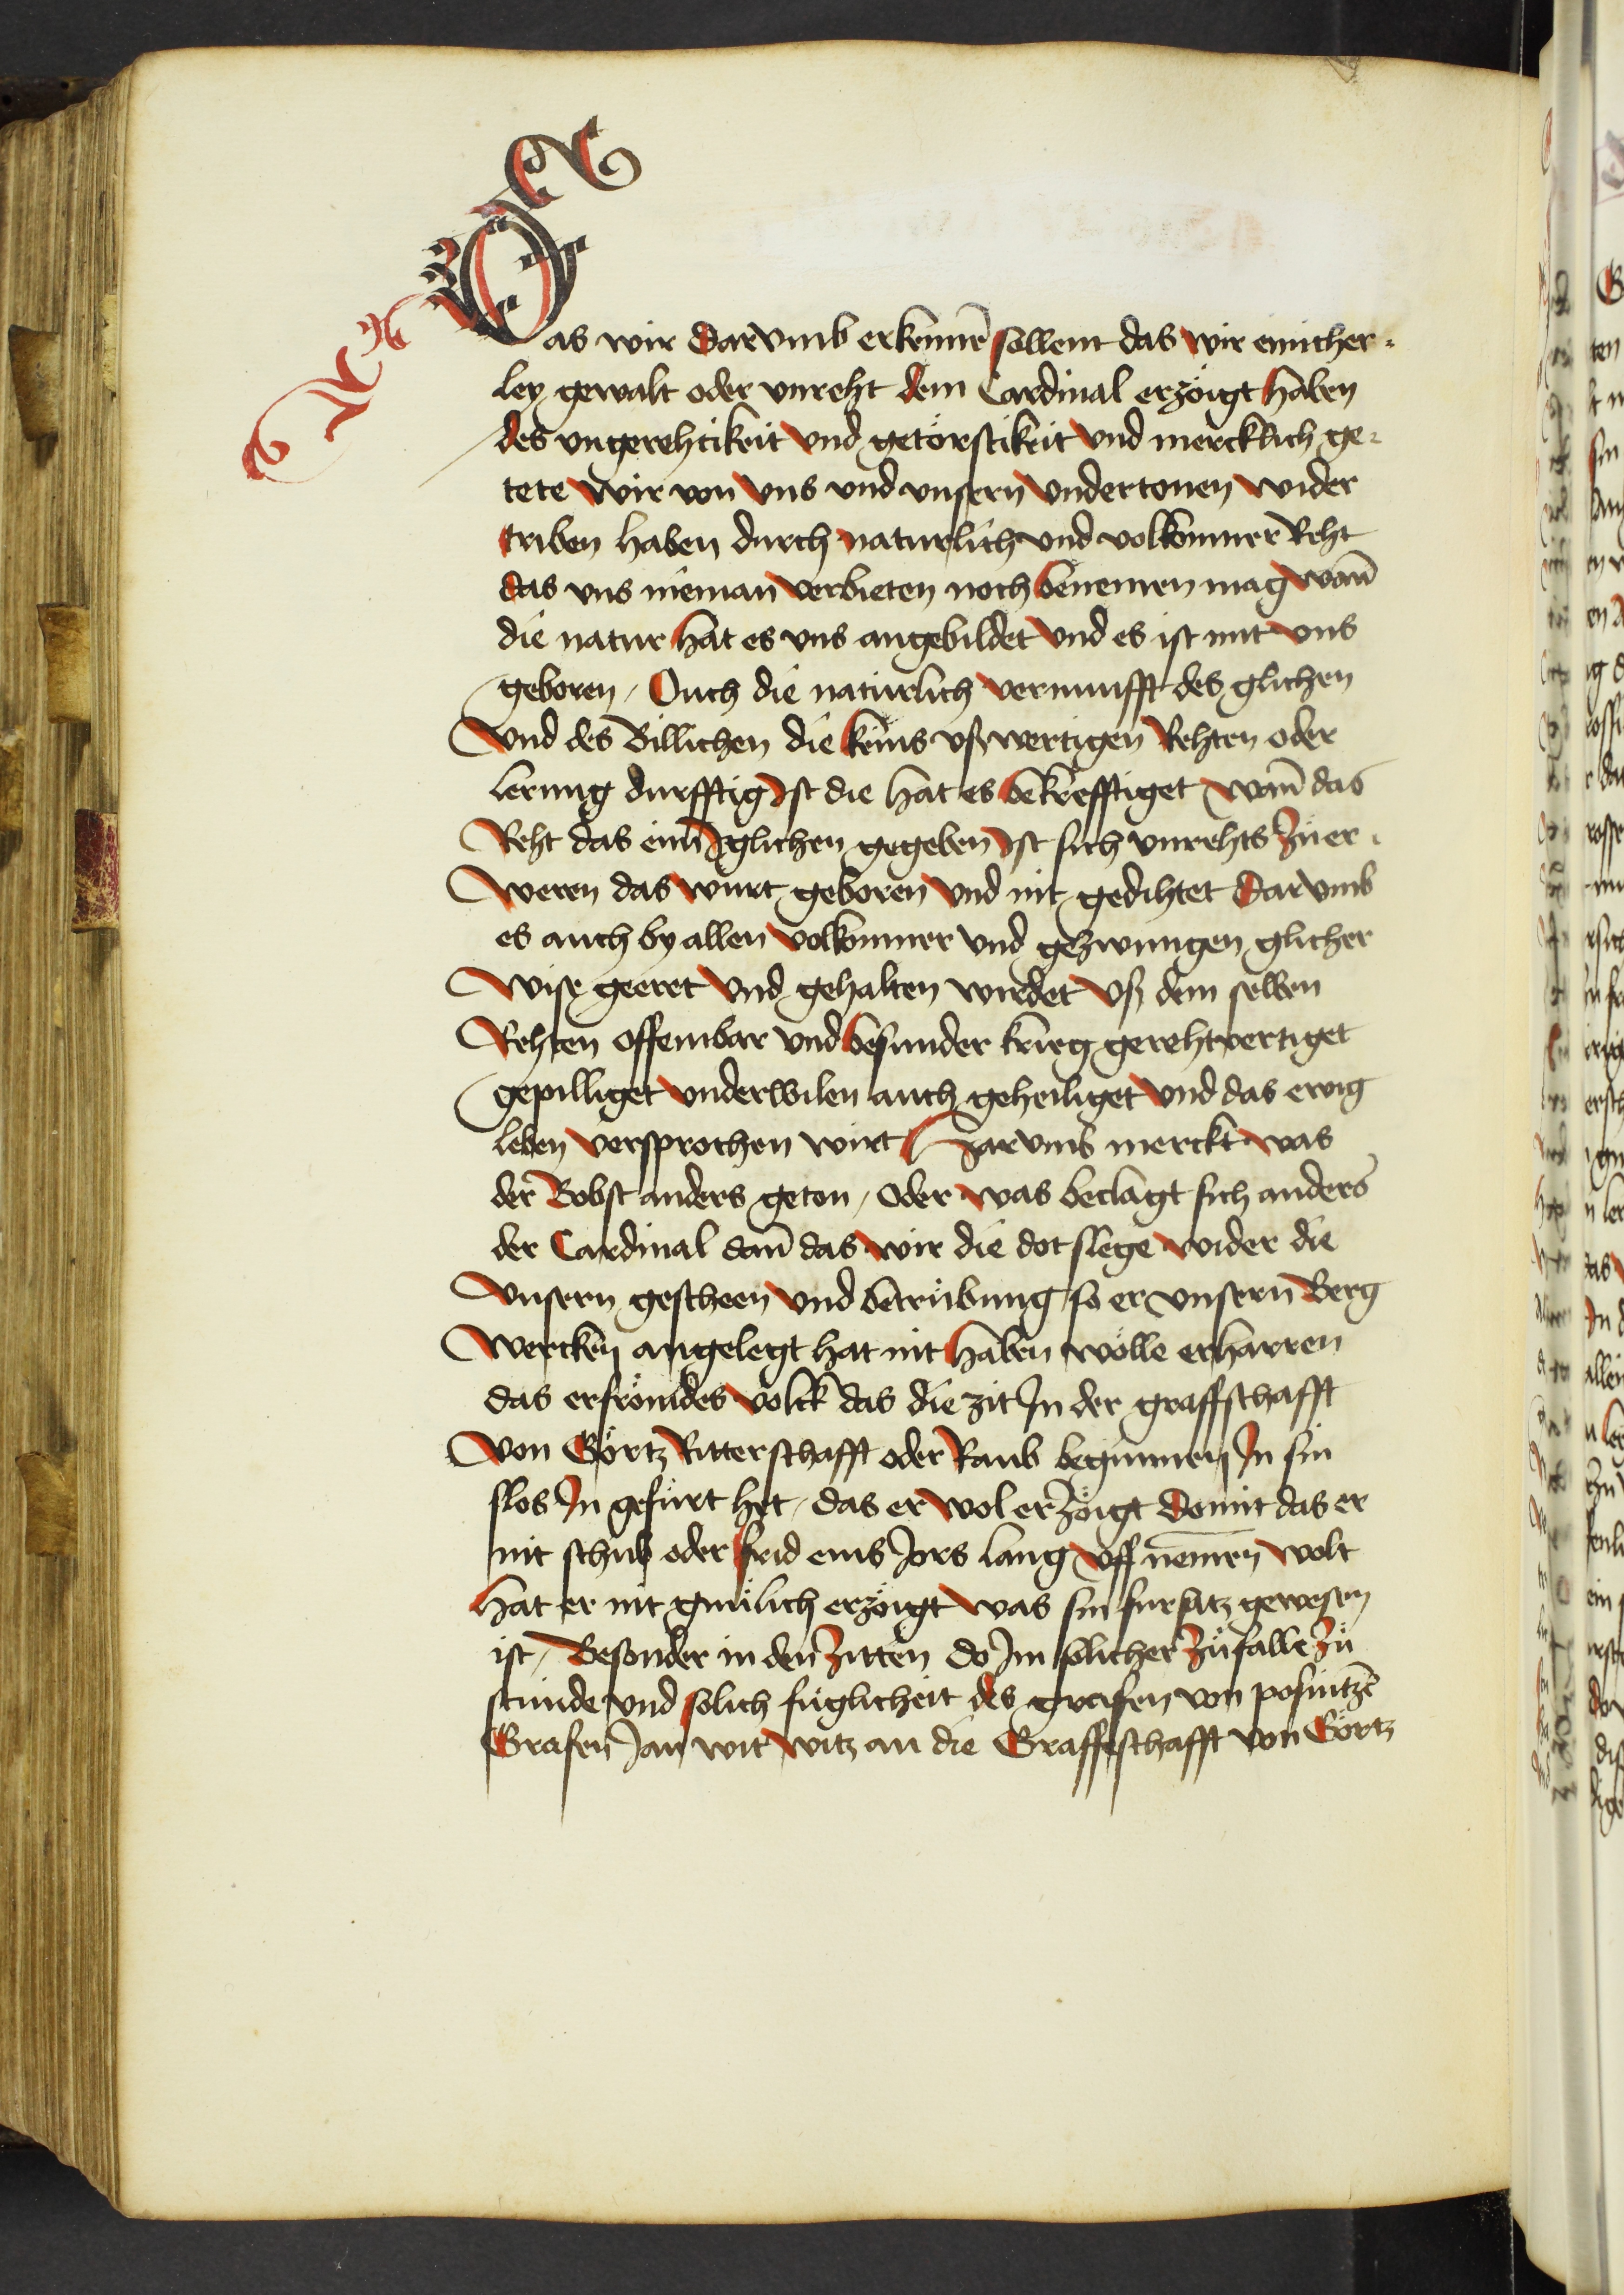 Das wir darvmb erkennē sollent das wir einicher=
ley gewalt oder vnreht dem Cardinal erzöigt haben
des vngerehtikeit vnd getörstikeit vnd mercklich ge=
tete wir von vns vnd vnsern vndertonen wider
triben haben durch naturlich vnd volkomner Reht
das vns nieman verbieten noch benemen mag wañ
die natur hat es vns angebildet vnd es ist mit vns
geboren / Ouch die natürlich vernunfft des glichen
Vnd des Billichen die keins vßwertigen Rehten oder
lerung durfftig Ist die hat es bekrefftiget wañ das
Reht das eim Iglichen gegeben Ist sich vnrehts zu er=
weren das wurt geboren vnd nit gedihtet darvmb
es auch by allen volkomner vnd gezwungen glicher
Wise geeret vnd gehalten wirdet vß dem selben
Rehten offembar vnd besunder krieg gerehtvertiget
gepilliget vnderwilen auch geheiliget vnd das ewig
leben versprochen wirt Harvmb merckt was
der Bobst anders geton / oder was beclagt sich anders
der Cardinal dañ das wir die dotslege wider die
Vnsern gescheen vnd betrübung so er vnsern Berg
Wercken angelegt hat nit haben wölle erharren
das er frömdes volck das die zit In der graffschafft
Von Görtz Ritterschafft oder Raub begunnen In sin
slos In gefürt het / das er wol erzöigt domit das er
nit schub oder frid eins Jors lang vff nemen wolt
hat er nit gnulich erzöigt was sin fursatz gewesen
ist / Besonder in den zitten do Im solicher zufalle zu
stunde vnd solich füglicheit des grafen von posnitzē
Grafen Jan wit witz an die Graffeschafft von Görtz